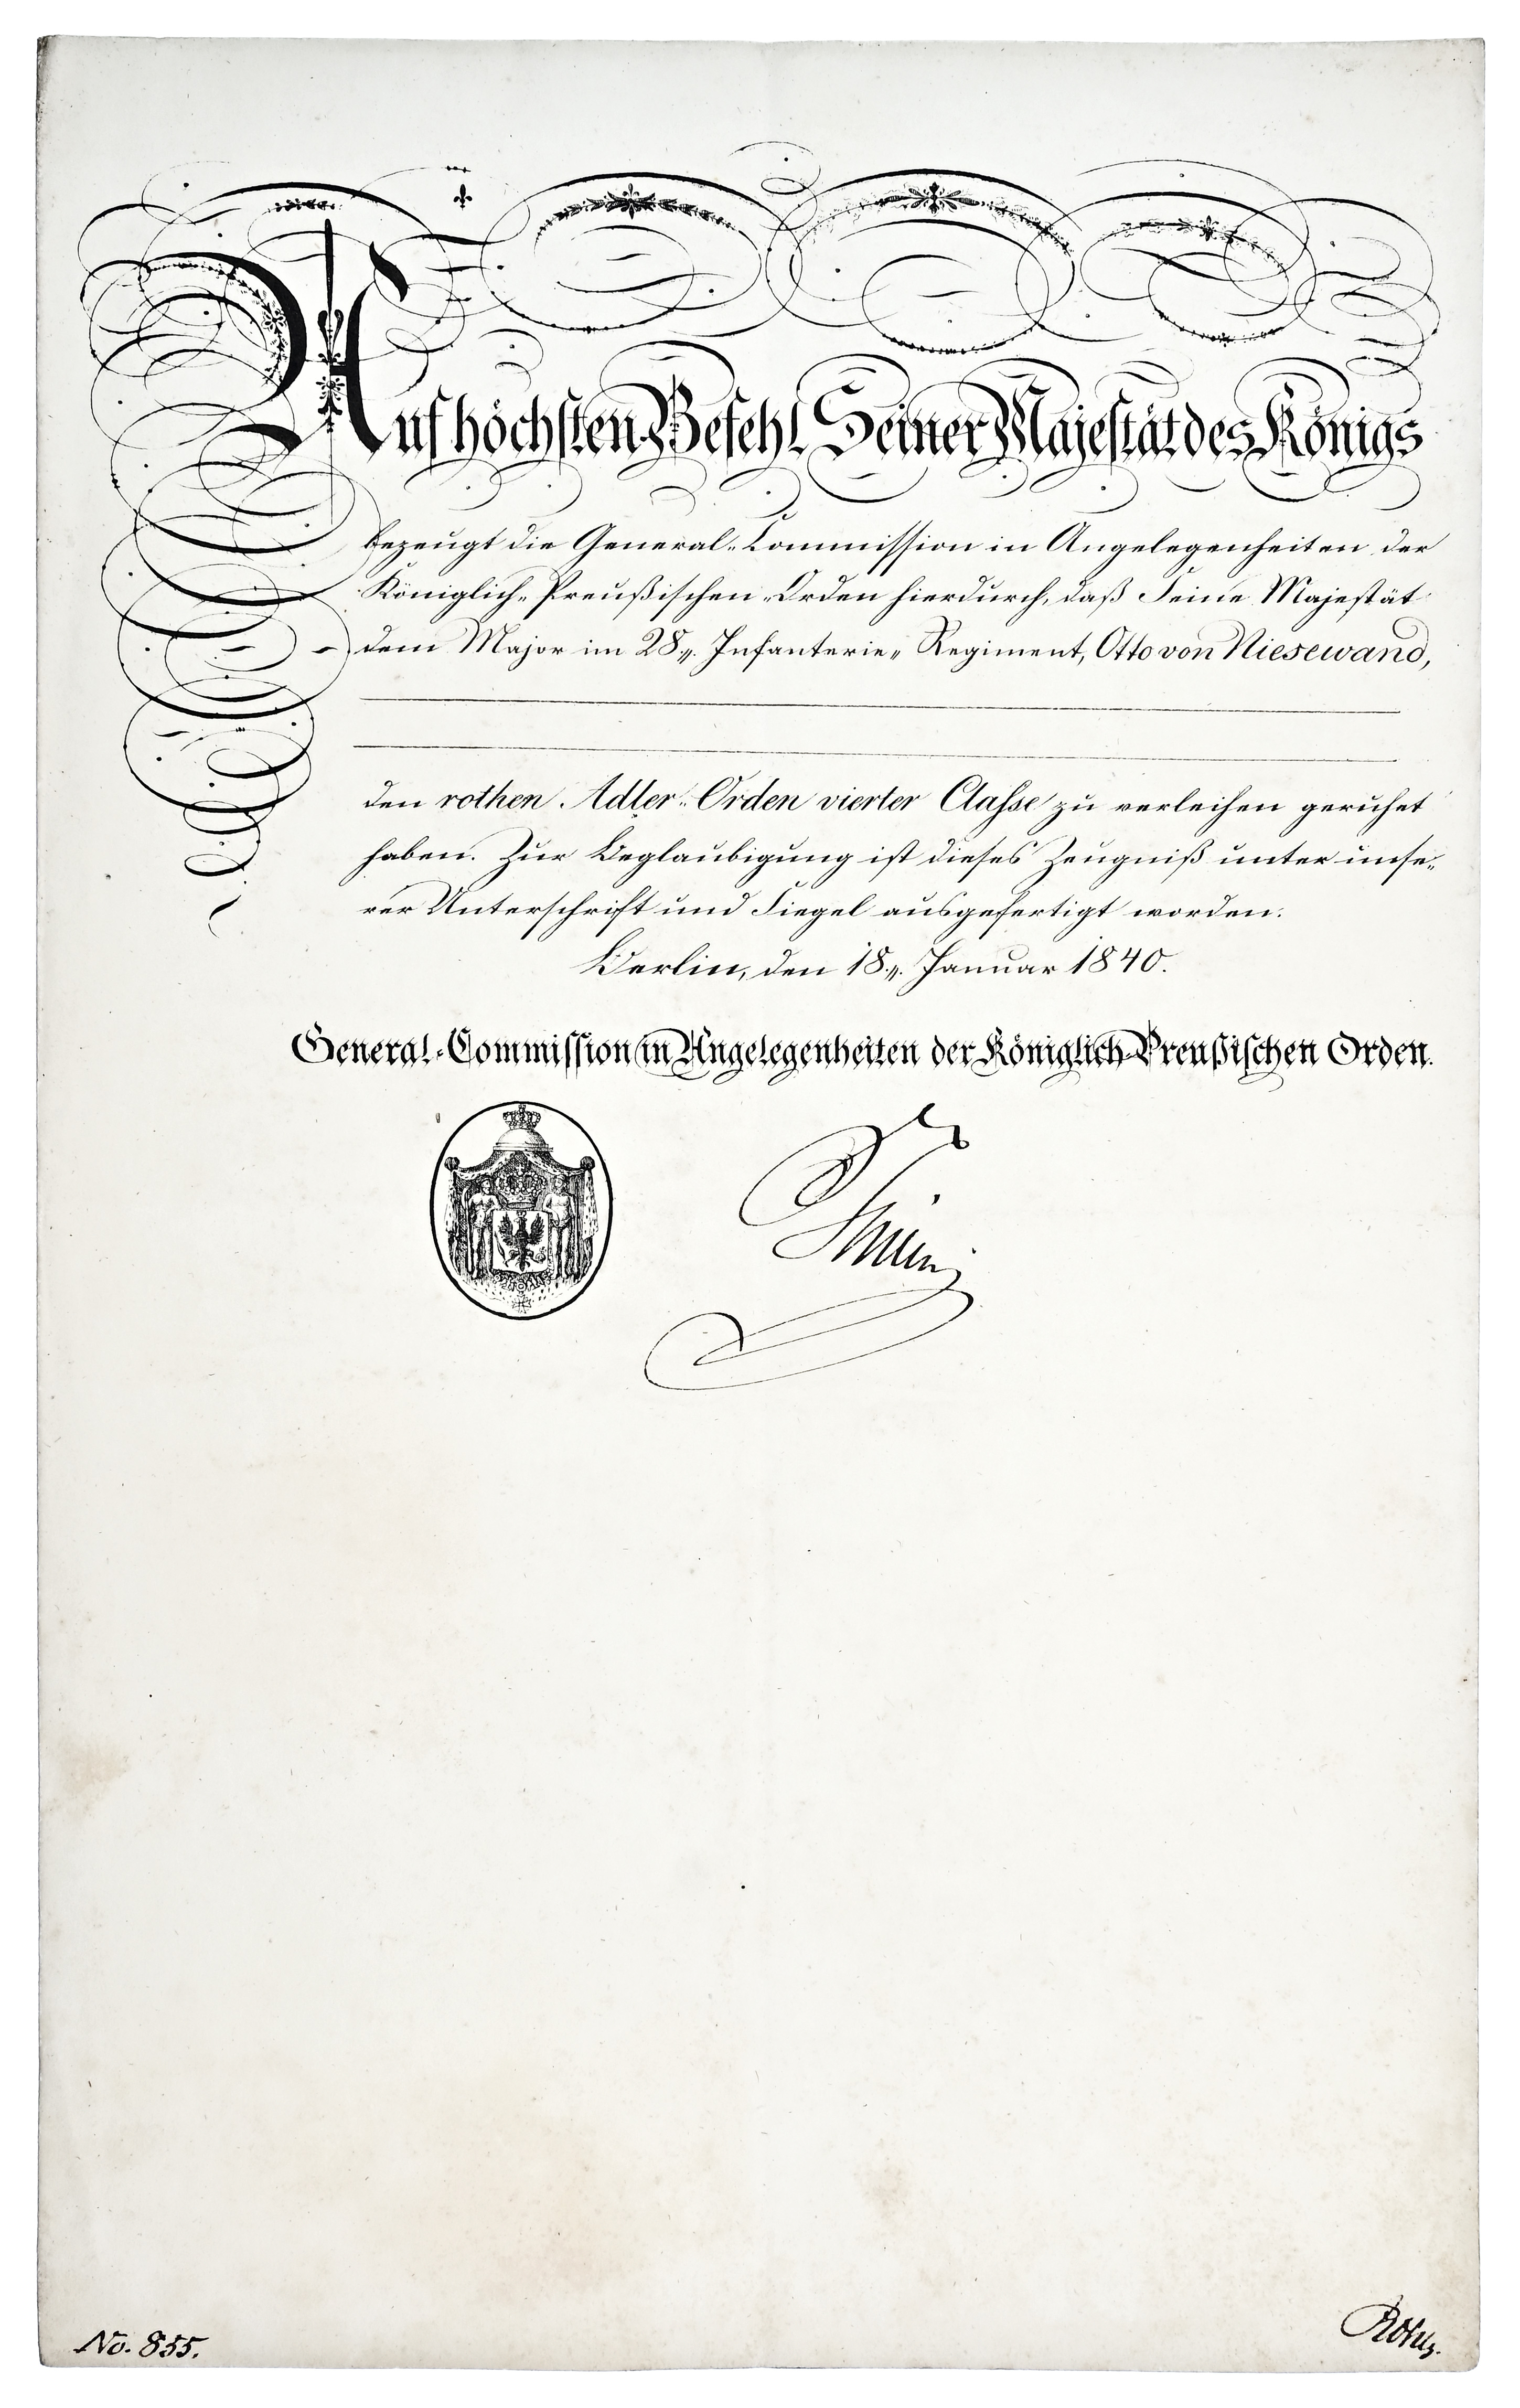 Auf höchsten Befehl Seiner Majestät des Königs
bezeugt die General-Commission in Angelegenheiten der
Königlich-Preußischen-Orden hierdurch, daß Seine Majestät
dem Major im 28„. Infanterie-Regiment, Otto von Niesewand,
den rothen Adler-Orden vierter Classe zu verleihen geruhet
haben. Zur Beglaubigung ist dieses Zeugniß unter unse-
rer Unterschrift und Siegel ausgefertigt worden.
Berlin, den 18„. Januar 1840.
General-Commission in Angelegenheiten der Königlich-Preußischen Orden.
No. 855.